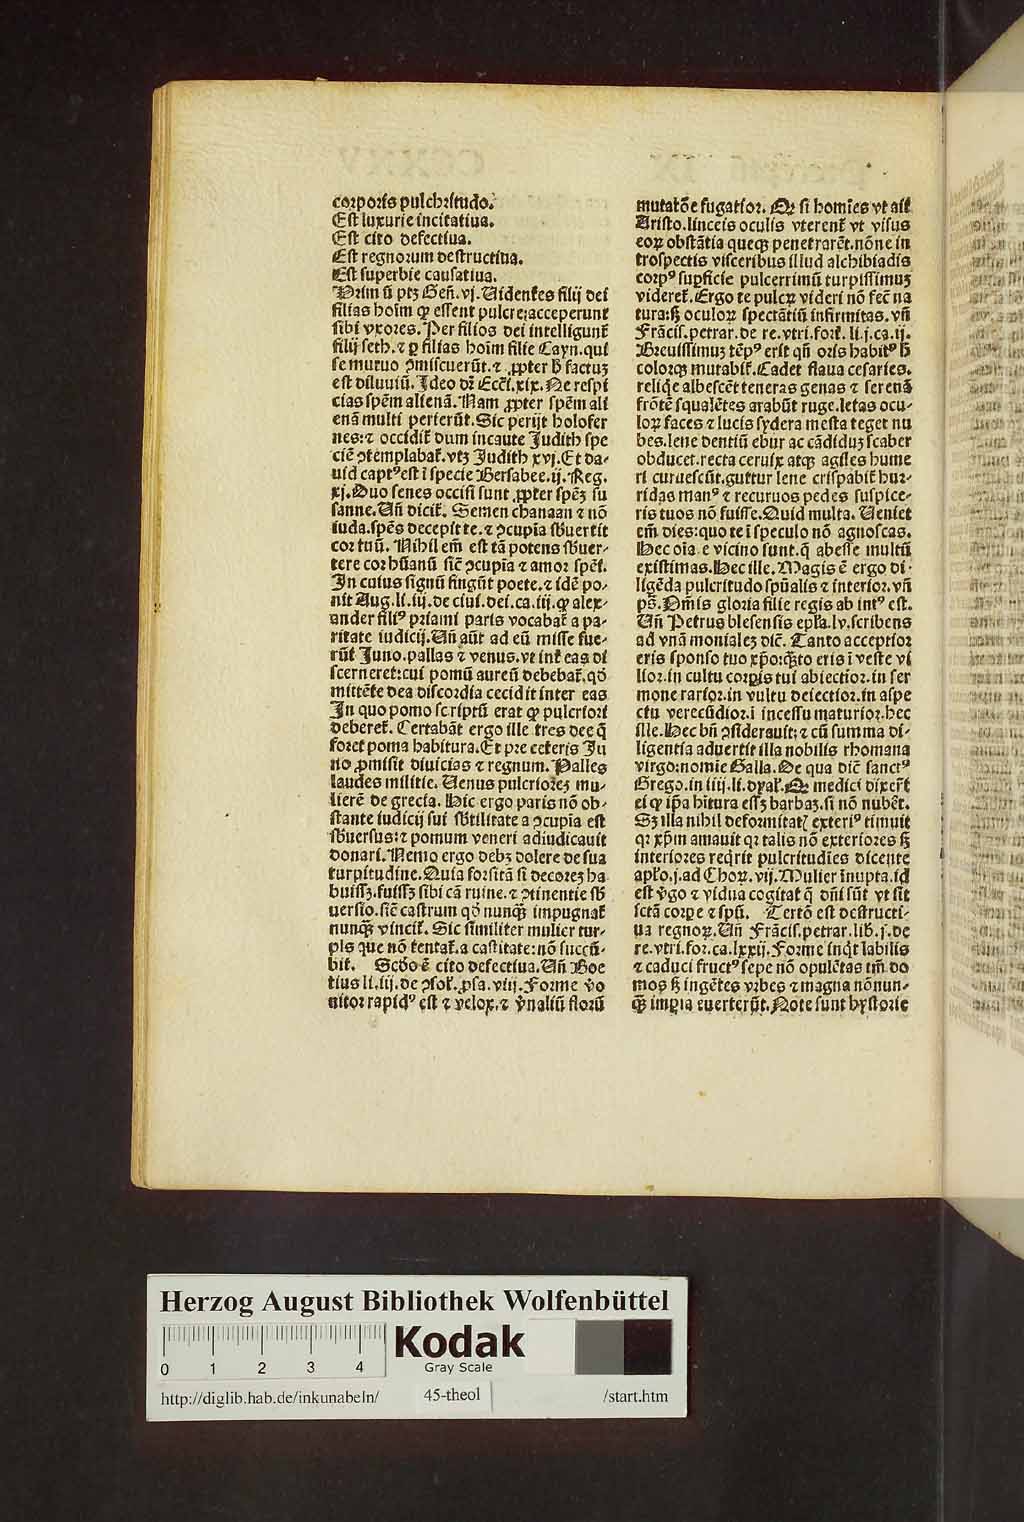 corporis pulchritudo.
Est luxurie incitatiua.
Est cito defectiua.
Est regnorum destructiua.
Est superbie causatiua.
Primũ ptꝫ Geñ. vj. Uidentes filij dei
filias hoĩm ꝙ essent pulcre; acceperunt
sibi vxores. Per filios dei intelligunt̃
filij seth. ⁊ ꝑ filias hoĩm filie Cayn. qui
se mutuo ꝯmiscuerũt. ⁊ ꝓpter h̃ factuꝫ
est diluuiũ. Ideo dr̃ Ecc̃i. xix. Ne respi
cias spẽm alienã. Nam ꝓpter spẽm ali
enã multi perierũt. Sic perijt holofer
nes: ⁊ occidit̃ dum incaute Judith spe
ciẽ ꝯtemplabat̃. vtꝫ Judith xvj. Et da-
uid captꝰ est ĩ specie Bersabee. ij. Reg.
xj. Duo senes occisi sunt ꝓpter spẽꝫ su
sanne. Uñ dicit̃. Semen chanaan ⁊ nõ
iuda. spẽs decepit te. ⁊ ꝯcupĩa sb̃uertit
cor tuũ. Nihil em̃ est tã potens sb̃uer-
tere cor hũanũ sic̃ ꝯcupĩa ⁊ amor spẽi.
In cuius signũ fingũt poete. ⁊ idẽ po-
nit Aug. li. iij. de ciui. dei. ca. iij. ꝙ alex-
ander filiꝰ priami paris vocabat̃ a pa-
ritate iudicij. Uñ aũt ad eũ misse fue-
rũt Juno. pallas ⁊ venus. vt int̃ eas di
scerneret: cui pomũ aureũ debebat̃. qd̃
mittẽte dea discordia cecidit inter eas
In quo pomo scriptũ erat ꝙ pulcriori
deberet̃. Certabãt ergo ille tres dee q̃
foret poma habitura. Et pre ceteris Ju
no ꝓmisit diuicias ⁊ regnum. Palles
laudes militie. Uenus pulcrioreꝫ mu-
lierẽ de grecia. Hic ergo paris nõ ob-
stante iudicij sui sb̃tilitate a ꝯcupĩa est
sb̃uersus: ⁊ pomum veneri adiudicauit
donari. Nemo ergo debꝫ dolere de sua
turpitudine. Quia forsitã si decoreꝫ ha
buissꝫ. fuissꝫ sibi cã ruine. ⁊ ꝯtinentie sb̃
uersio. sic̃ castrum qd̃ nunqꝫ̃ impugnat̃
nunqꝫ̃ vincit̃. Sic similiter mulier tur-
pis que nõ tentat̃. a castitate: nõ succũ-
bit̃. Scd̃o ẽ cito defectiua. Uñ Boe
tius li. iij. de ꝯsol̃. ꝓsa. viij. Forme ṽo
nitor rapidꝰ est ⁊ velox. ⁊ ṽnaliũ florũ
mutatõe fugatior. Qꝫ si homĩes vt ait̃
Aristo. linceis oculis vterent̃ vt visus
eoꝝ obstãtia queqꝫ penetrarẽt. nõne in
trospectis visceribus illud alchibiadis
corpꝰ suꝑficie pulcerrimũ turpissimuꝫ
videret̃. Ergo te pulcꝝ videri nõ fec̃ na
tura: sꝫ oculoꝝ spectãtiũ infirmitas. vñ
Frãcis. petrar. de re. vtri. fort̃. li. j. ca. ij.
Breuissimuꝫ tẽpꝰ erit qñ oris habitꝰ h̃
colorqꝫ mutabit̃. Cadet flaua cesaries.
reliq̃e albescẽt teneras genas ⁊ serenã
frõtẽ squalẽtes arabũt ruge. letas ocu-
loꝝ faces ⁊ lucis sydera mesta teget nu
bes. lene dentiũ ebur ac cãdiduꝫ scaber
obducet. recta ceruix atqꝫ agiles hume
ri curuescũt. guttur lene crispabit̃ hur-
ridas manꝰ ⁊ recuruos pedes suspice-
ris tuos nõ fuisse. Quid multa. Ueniet
em̃ dies: quo te ĩ speculo nõ agnoscas.
Hec oĩa e vicino sunt. q̃ abesse multũ
existimas. Hec ille. Magis ẽ ergo di-
ligẽda pulcritudo spũalis ⁊ interior. vñ
ps̃. Om̃is gloria filie regis ab intꝰ est.
Uñ Petrus blesensis epĩa. lv. scribens
ad vnã monialeꝫ dic̃. Tanto acceptior
eris sponso tuo xp̃o: qꝫ̃to eris ĩ veste vi
lior. in cultu corꝑis tui abiectior. in ser
mone rarior. in vultu deiectior. in aspe
ctu verecũdior. ĩ incessu maturior. hec
ille. Hec bñ ꝯsiderauit: ⁊ cũ summa di-
ligentia aduertit illa nobilis rhomana
virgo: nomĩe Galla. De qua dic̃ sanctꝰ
Grego. in iiij. li. dyal̃. Qꝫ medici dixer̃t
ei ꝙ ip̃a hĩtura essꝫ barbaꝫ. si nõ nubẽt.
Sꝫ illa nihil deformitatꝭ exteriꝰ timuit
qꝛ xp̃m amauit qꝛ talis nõ exteriores sꝫ
interiores req̃rit pulcritudĩes dicente
apl̃o. j. ad Choꝝ. vij. Mulier ĩnupta. id
est ṽgo ⁊ vidua cogitat q̃ dñi sũt vt sit
sctã corꝑe ⁊ spũ. Tertõ est destructi-
ua regnoꝝ. Uñ Frãcis. petrar. lib̃. j. de
re. vtri. for. ca. lxxij. Forme inq̃t labilis
⁊ caduci fructꝰ sepe nõ opulẽtas tm̃ do
mos sꝫ ingẽtes vrbes ⁊ magna nõnun-
qꝫ̃ imꝑia euerterũt. Note sunt hystorie
Herzog August Bibliothek Wolfenbüttel
0 1 2 3 4
Kodak
Gray Scale
http://diglib.hab.de/inkunabeln/ 45-theol /start.htm